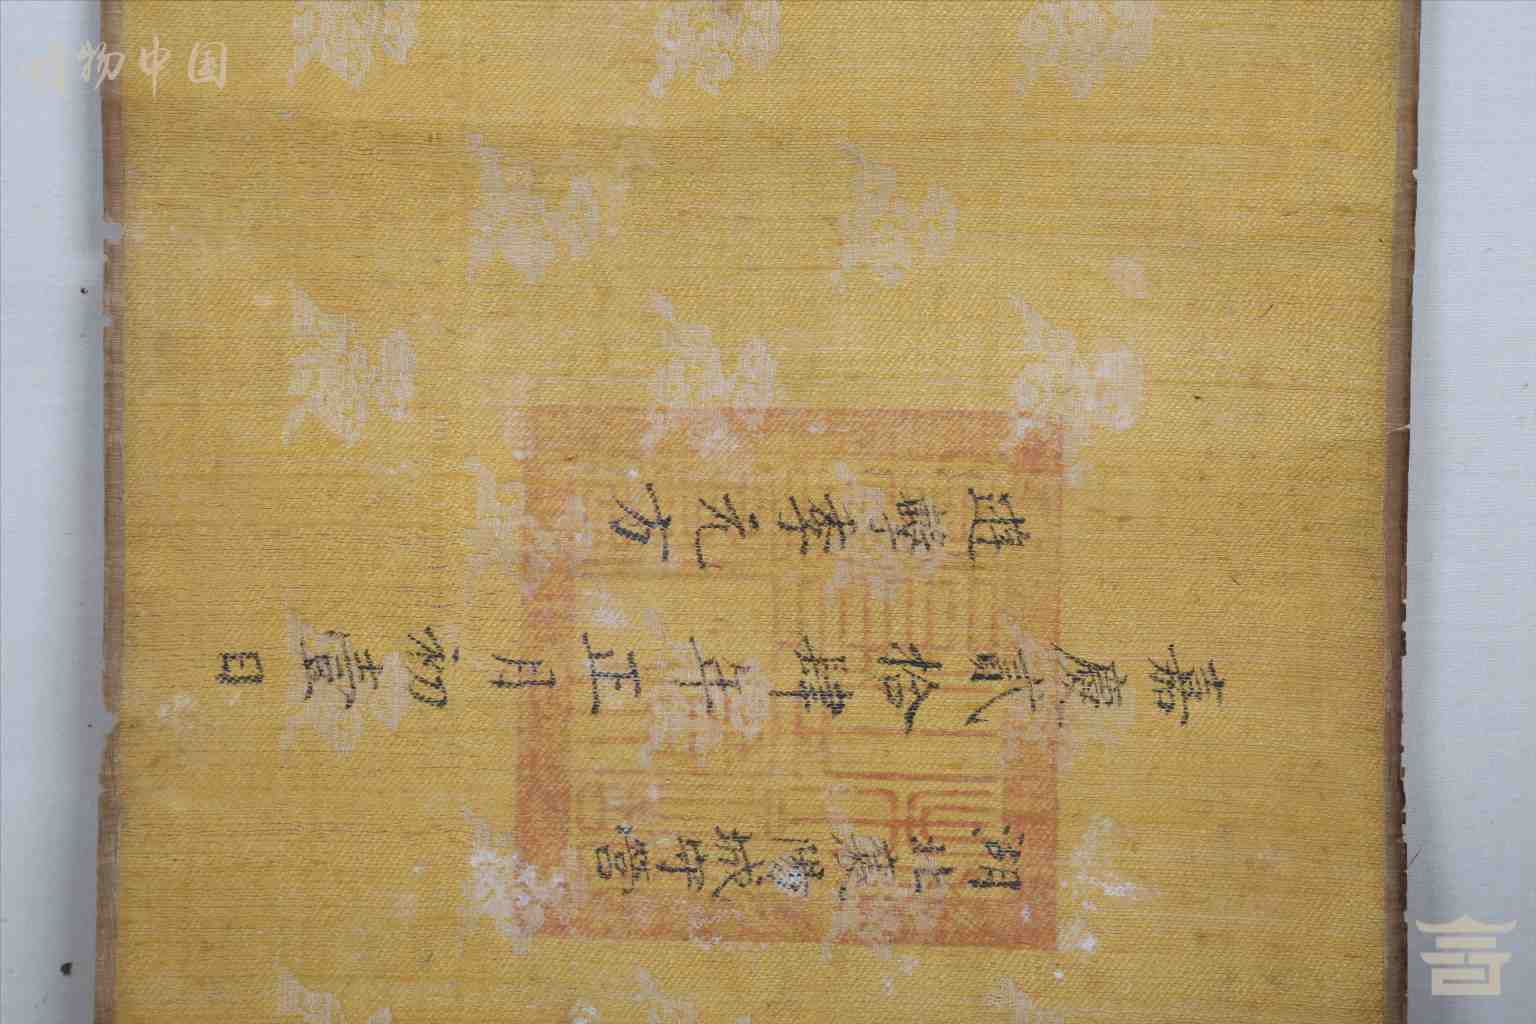 湖北襄陽城守營
嘉慶貳拾肆年正月初壹日
遊擊李元方
物中国